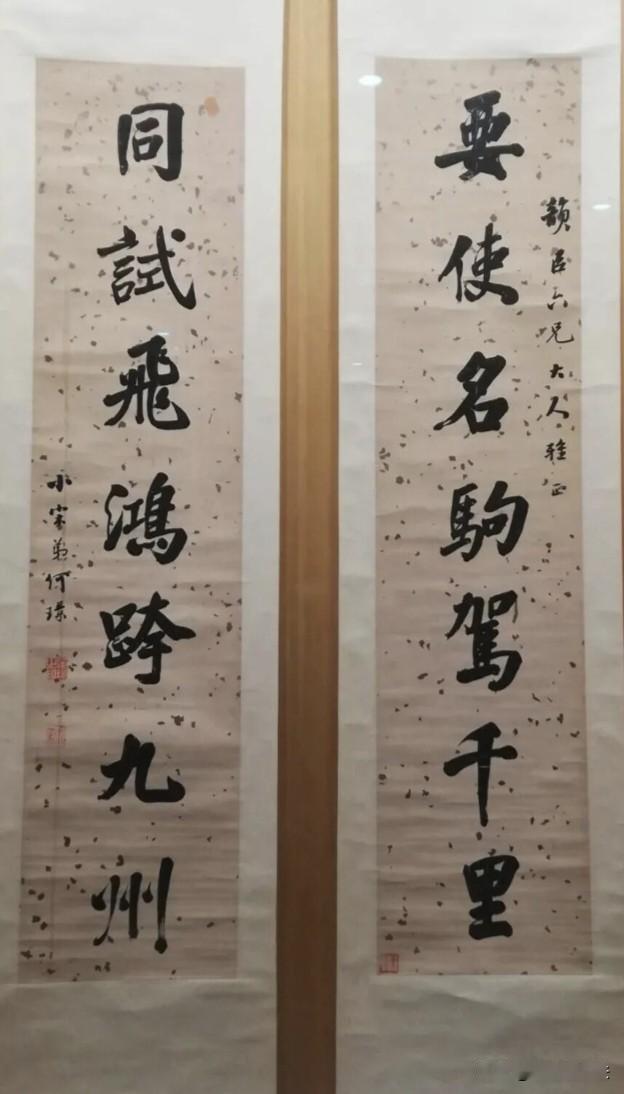 韻臣六兄大人雅正
要使名駒駕千里
同試飛鴻跨九州
小宋弟何璟